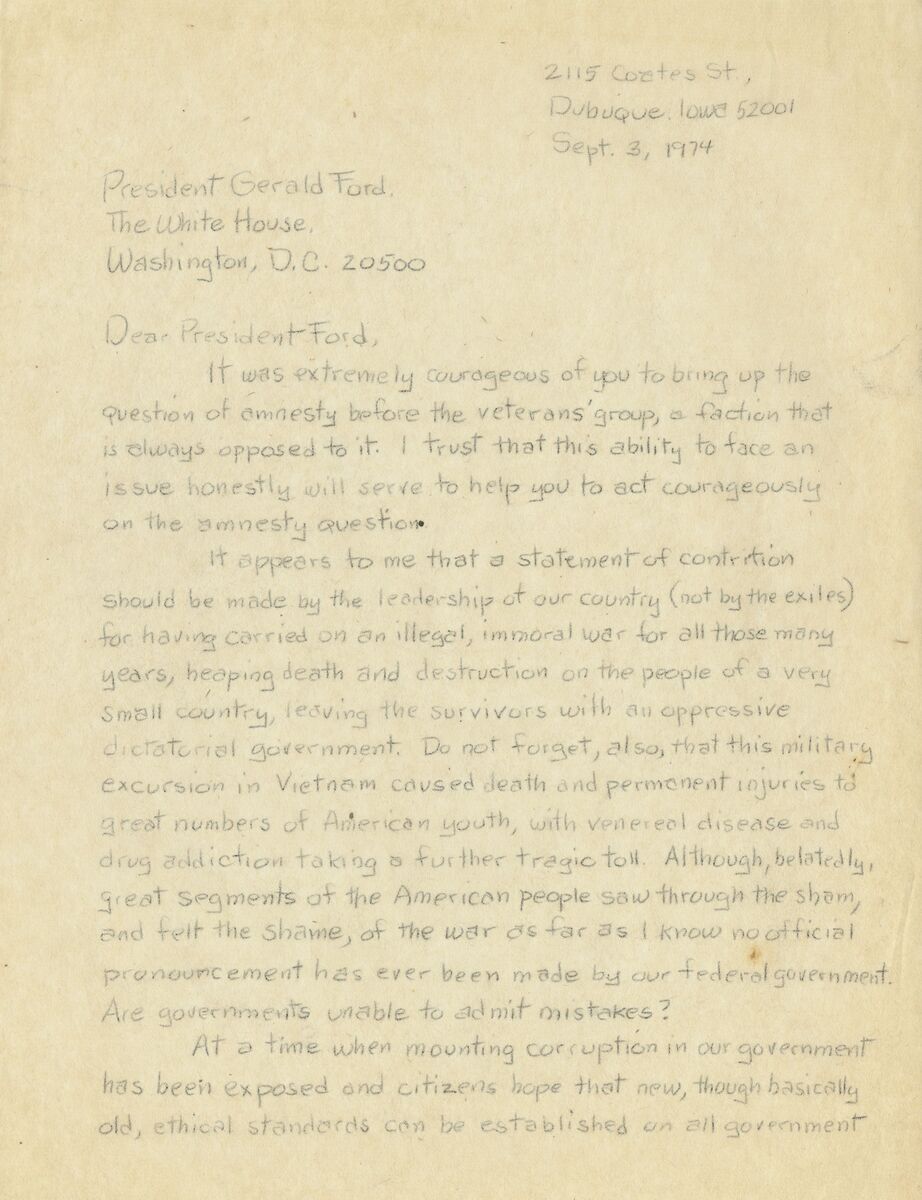 2115 Coates St.,
Dubuque, Iowa 52001
Sept. 3, 1974
President Gerald Ford,
The White House,
Washington, D.C. 20500
Dear President Ford,
It was extremely courageous of you to bring up the
question of amnesty before the veterans' group, a faction that
is always opposed to it. I trust that this ability to face an
issue honestly will serve to help you to act courageously
on the amnesty question.
It appears to me that a statement of contrition
should be made by the leadership of our country (not by the exiles)
for having carried on an illegal, immoral war for all those many
years, heaping death and destruction on the people of a very
small country, leaving the survivors with an oppressive
dictatorial government. Do not forget, also, that this military
excursion in Vietnam caused death and permanent injuries to
great numbers of American youth, with venereal disease and
drug addiction taking a further tragic toll. Although, belatedly,
great segments of the American people saw through the sham,
and felt the shame, of the war as far as I know no official
pronouncement has ever been made by our federal government.
Are governments unable to admit mistakes?
At a time when mounting corruption in our government
has been exposed and citizens hope that new, though basically
old, ethical standards can be established on all government